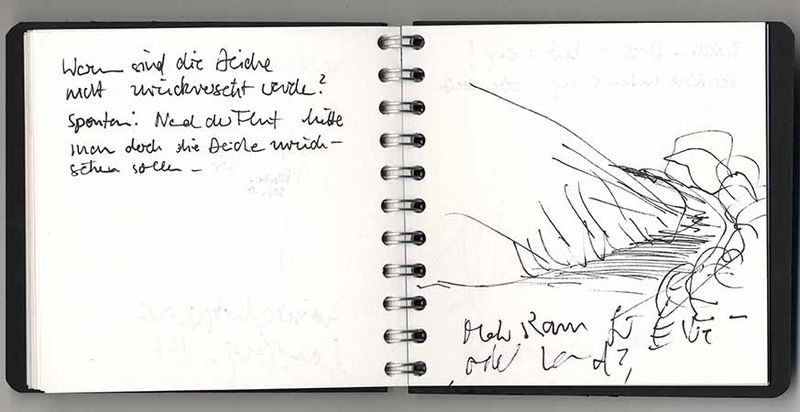 Warum sind die Deiche
nicht zurückversetzt
Spontan: Nach der Flut hätte
man doch die Deiche zurück-
setzen sollen –
Mehr Raum für Elbe –
oder Land?